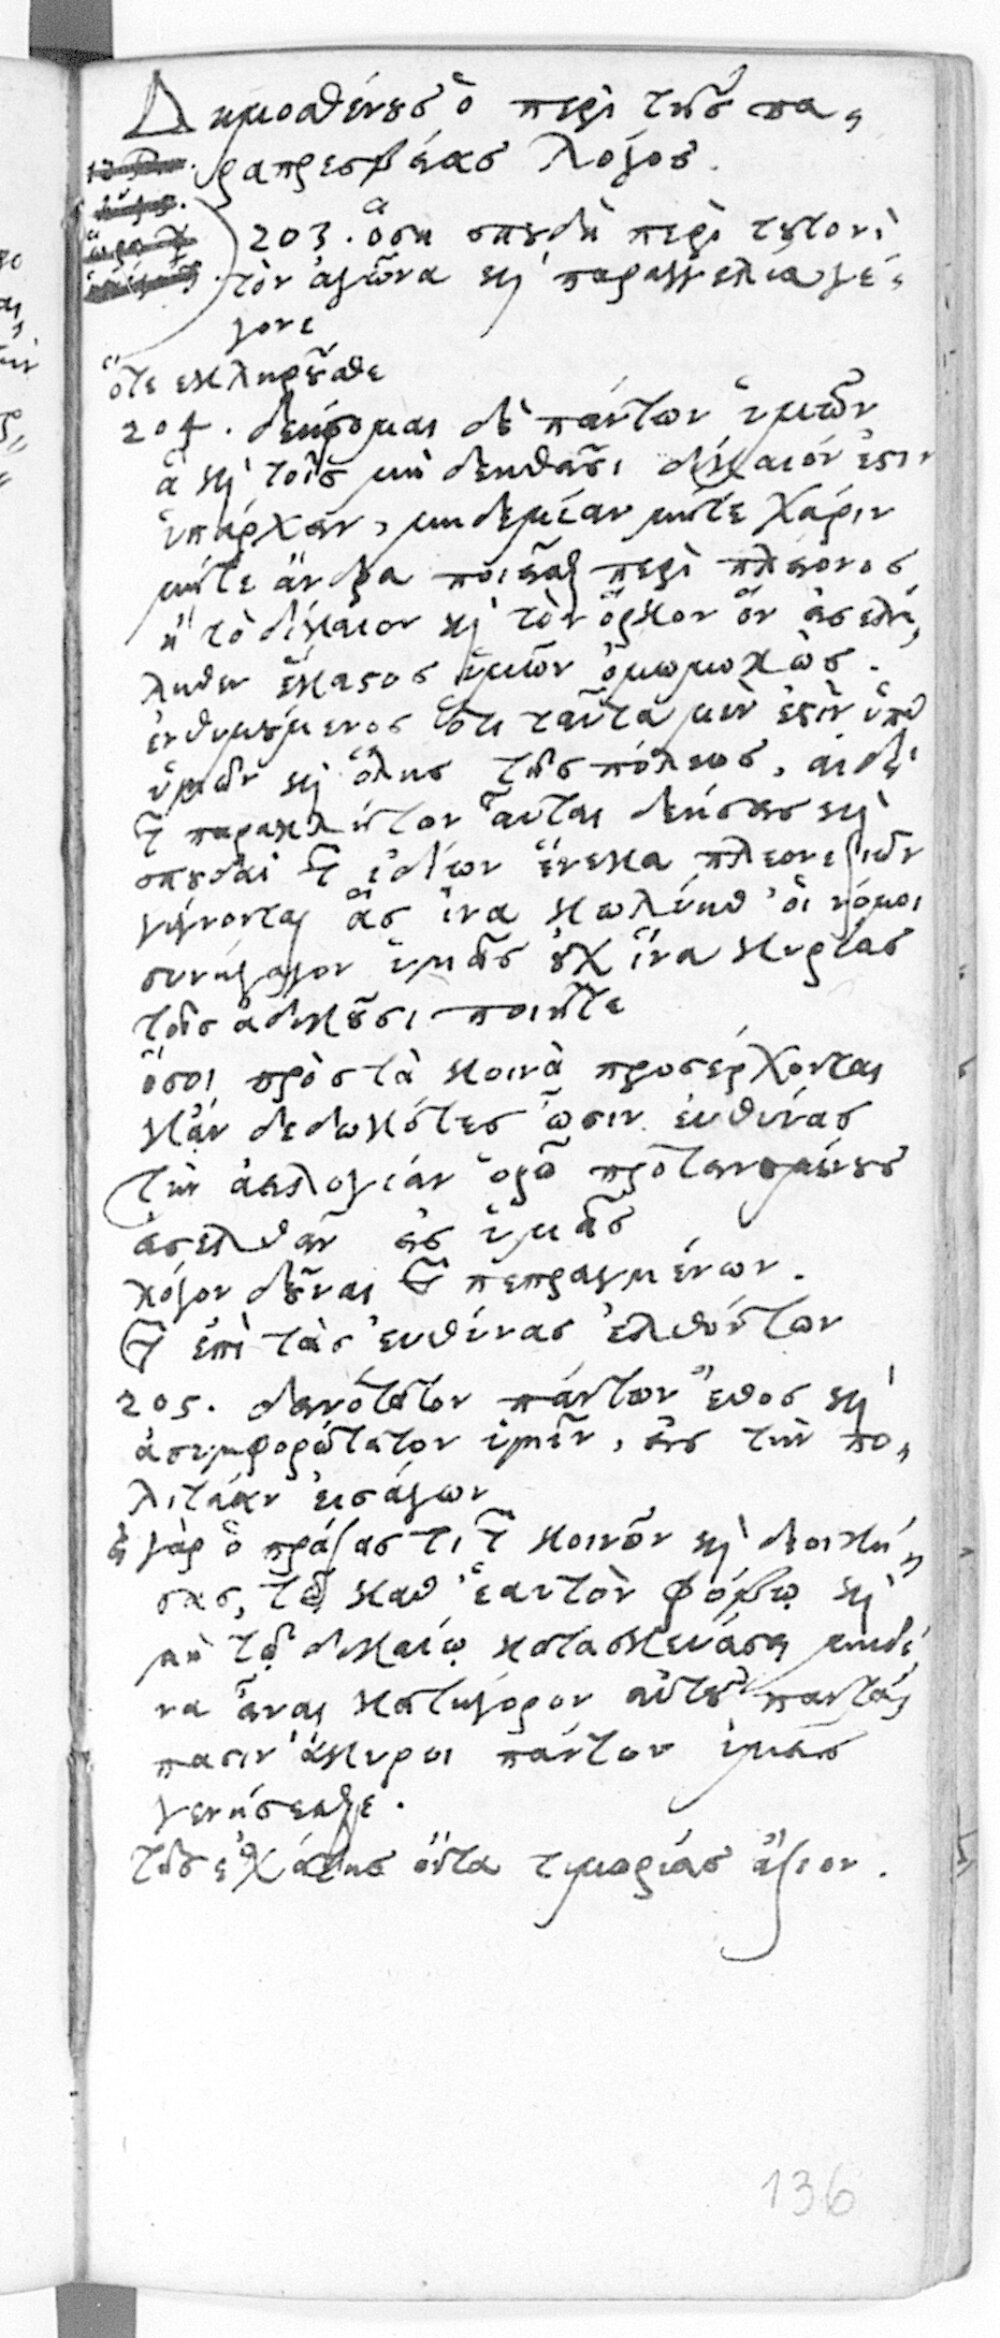 Δημοσθένους ὁ περὶ τῆς πα-
ραπρεσβείας λόγος.
203. ὅση σπουδὴ περὶ τουτονὶ
τὸν ἀγῶνα καὶ παραγγελία γέ-
γονε
ὅτε ἐκληροῦσθε
204. δεήσομαι δὲ πάντων ὑμῶν
ἃ καὶ τοῖς μὴ δεηθεῖσι δίκαιόν ἐστιν
ὑπάρχειν, μηδεμίαν μήτε χάριν
μήτε ἄνδρα ποιεῖσθαι περὶ πλείονος
ἢ τὸ δίκαιον καὶ τὸν ὅρκον ὃν εἰσελή-
λυθεν ἕκαστος ὑμῶν ὀμωμοκώς.
ἐνθυμούμενος ὅτι ταῦτα μὲν ἐστὶν ὑπὲρ
ὑμῶν καὶ ὅλης τῆς πόλεως, αἱ δὲ
τῶν παρακλήτων αὗται δεήσεις καὶ
σπουδαὶ τῶν ἰδίων ἕνεκα πλεονεξιῶν
γίγνονται ἃς ἵνα κωλύηθ' οἱ νόμοι
συνήγαγον ὑμᾶς οὐχ ἵνα κυρίας
τοῖς ἀδικοῦσι ποιῆτε
ὅσοι πρὸς τὰ κοινὰ προσέρχονται
κἂν δεδωκότες ὦσιν εὐθύνας
τὴν ἀειλογίαν ὁρῶ προτεινομένους
εἰσελθεῖν εἰς ὑμᾶς
λόγον δοῦναι τῶν πεπραγμένων.
τῶν ἐπὶ τὰς εὐθύνας ἐλθόντων
205. δεινότατον πάντων ἔθος καὶ
ἀσυμφορώτατον ὑμῖν, εἰς τὴν πο-
λιτείαν εἰσάγων
εἰ γὰρ ὁ πράξας τι τῶν κοινῶν καὶ διοική-
σας, τῷ καθ' ἑαυτὸν φόβῳ καὶ
μὴ τῷ δικαίῳ κατασκευάσει μηδέ-
να εἶναι κατήγορον αὐτοῦ παντά-
πασιν ἄκυροι πάντων ὑμεῖς
γενήσεσθε.
τῆς ἐσχάτης ὄντα τιμωρίας ἄξιον.
136